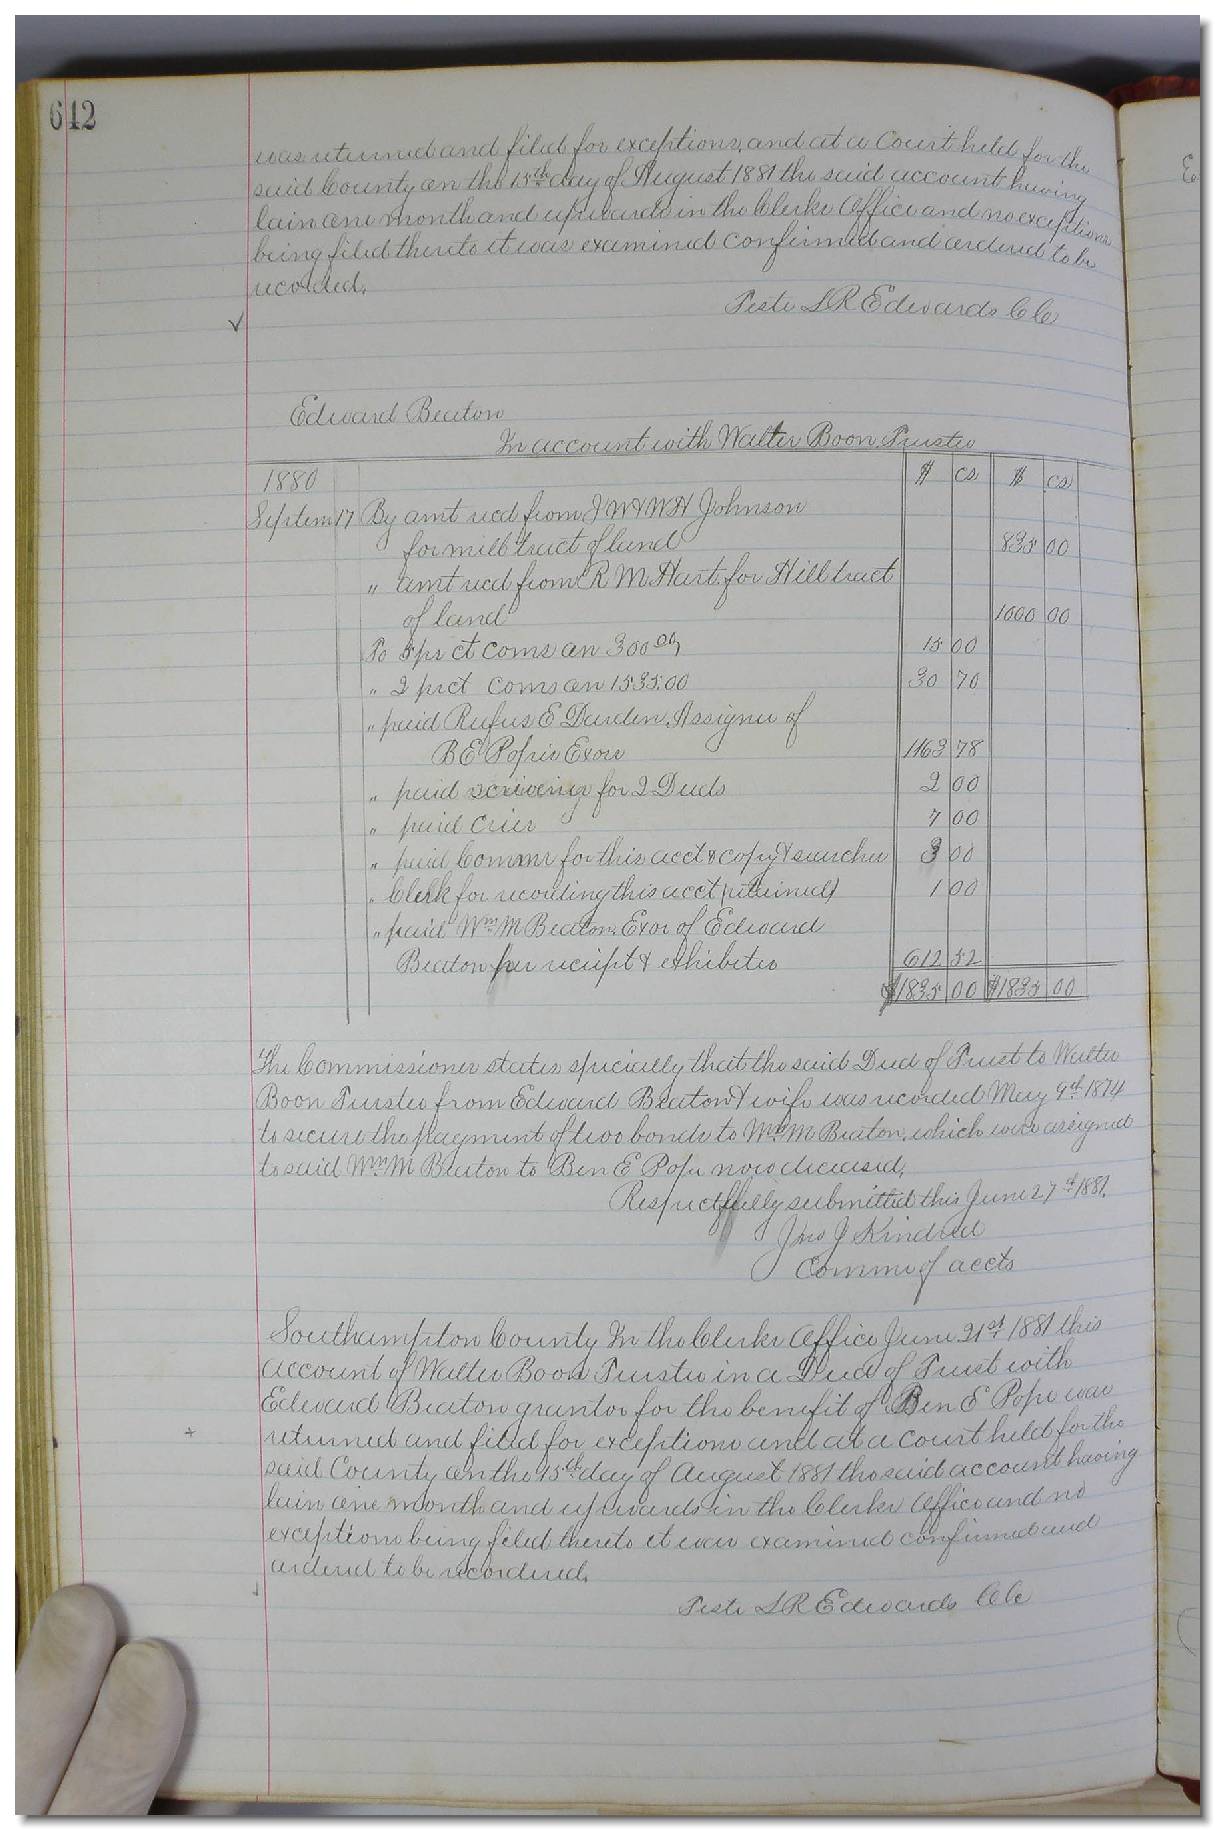 642
was returned and filed for exceptions, and at a Court held for the
said County on the 15th day of August 1881 the said account having
lain one month and upwards in the Clerks Office and no exceptions
being filed thereto it was examined confirmed and ordered to be
recorded.
Teste L R Edwards CC
Edward Beaton
In account with Walter Boon Trustee
1880 $ cs $ cs
Septem 17 By amt recd from J W & W H Johnson
for mill tract of land 835 00
" amt recd from R M Hart for Hill tract
of land 1000 00
To 5 pr ct coms on 300 00 15 00
" 2 pr ct coms on 1535.00 30 70
" paid Rufus E Darden Assignee of
B E Pope's Exor 1163 78
" paid scrivening for 2 Deeds 2 00
" paid crier 7 00
" paid Commr for this acct & copy & searches 3 00
" Clerk for recording this acct (retained) 1 00
" paid Wm M Beaton Exor of Edward
Beaton per receipt & exhibits 612 52
$1835 00 $1835 00
The Commissioner states specially that the said Deed of Trust to Walter
Boon Trustee from Edward Beaton & wife was recorded May 9th 1874
to secure the payment of two bonds to Wm M Beaton, which were assigned
to said Wm M Beaton to Ben E Pope now deceased.
Respectfully submitted this June 27th 1881.
Jno J Kindred
Commr of accts
Southampton County In the Clerks Office June 21st 1881 this
account of Walter Boon Trustee in a Deed of Trust with
Edward Beaton grantor for the benefit of Ben E Pope was
returned and filed for exceptions and at a Court held for the
said County on the 15th day of August 1881 the said account having
lain one month and upwards in the Clerks Office and no
exceptions being filed thereto it was examined confirmed and
ordered to be recordered.
Teste L R Edwards CC